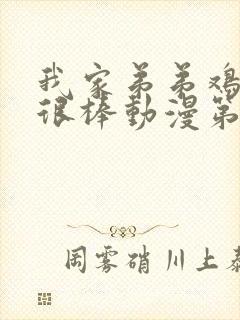 我家弟弟鸡
很棒動漫第
周雾硝川上泰